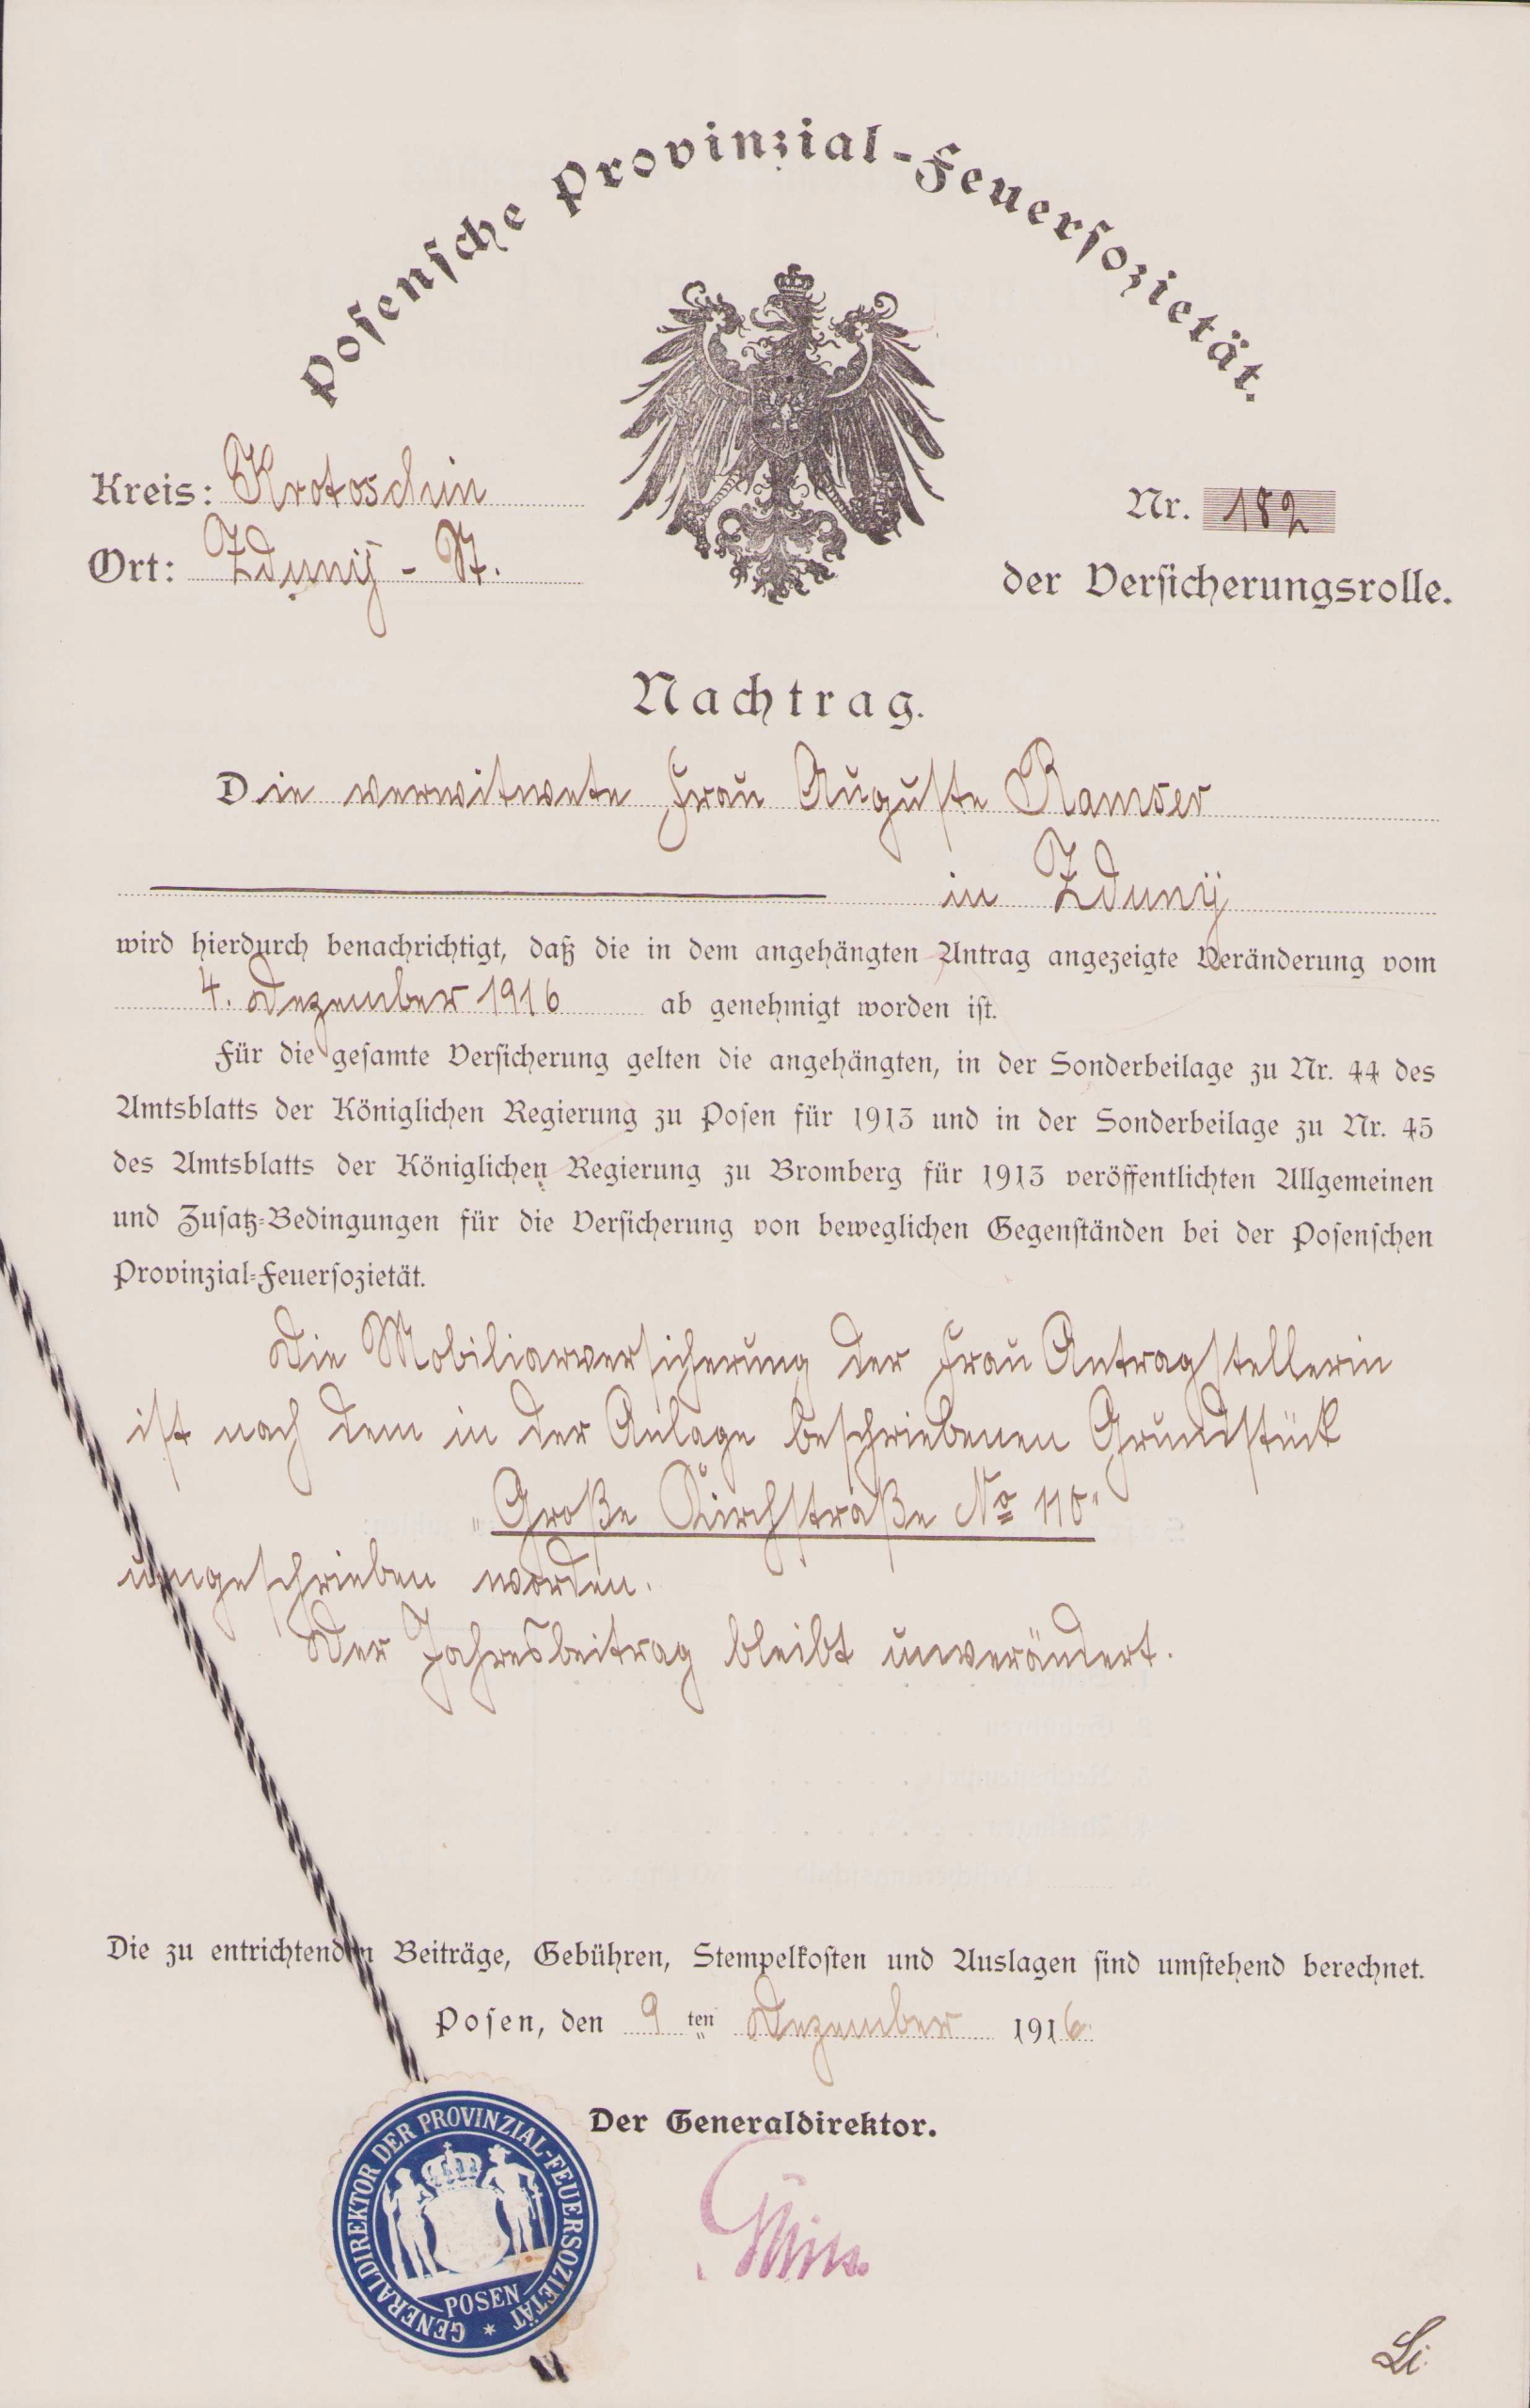 Posensche Provinzial-Feuersozietät.
Kreis: Krotoschin
Ort: Zduny - St.
Nr. 182
der Versicherungsrolle.
Nachtrag.
Die verwitwete Frau Auguste Ramser
in Zduny
wird hierdurch benachrichtigt, daß die in dem angehängten Antrag angezeigte Veränderung vom
4. Dezember 1916 ab genehmigt worden ist.
Für die gesamte Versicherung gelten die angehängten, in der Sonderbeilage zu Nr. 44 des
Amtsblatts der Königlichen Regierung zu Posen für 1913 und in der Sonderbeilage zu Nr. 45
des Amtsblatts der Königlichen Regierung zu Bromberg für 1913 veröffentlichten Allgemeinen
und Zusatz-Bedingungen für die Versicherung von beweglichen Gegenständen bei der Posenschen
Provinzial-Feuersozietät.
Die Mobiliarversicherung der Frau Antragstellerin
ist nach dem in der Anlage beschriebenen Grundstück
"Große Kirchstraße No 110"
umgeschrieben worden.
Der Jahresbeitrag bleibt unverändert.
Die zu entrichtenden Beiträge, Gebühren, Stempelkosten und Auslagen sind umstehend berechnet.
Posen, den 9 ten Dezember 1916.
Der Generaldirektor.
GENERALDIREKTOR DER PROVINZIAL-FEUERSOZIETÄT
POSEN
Li.